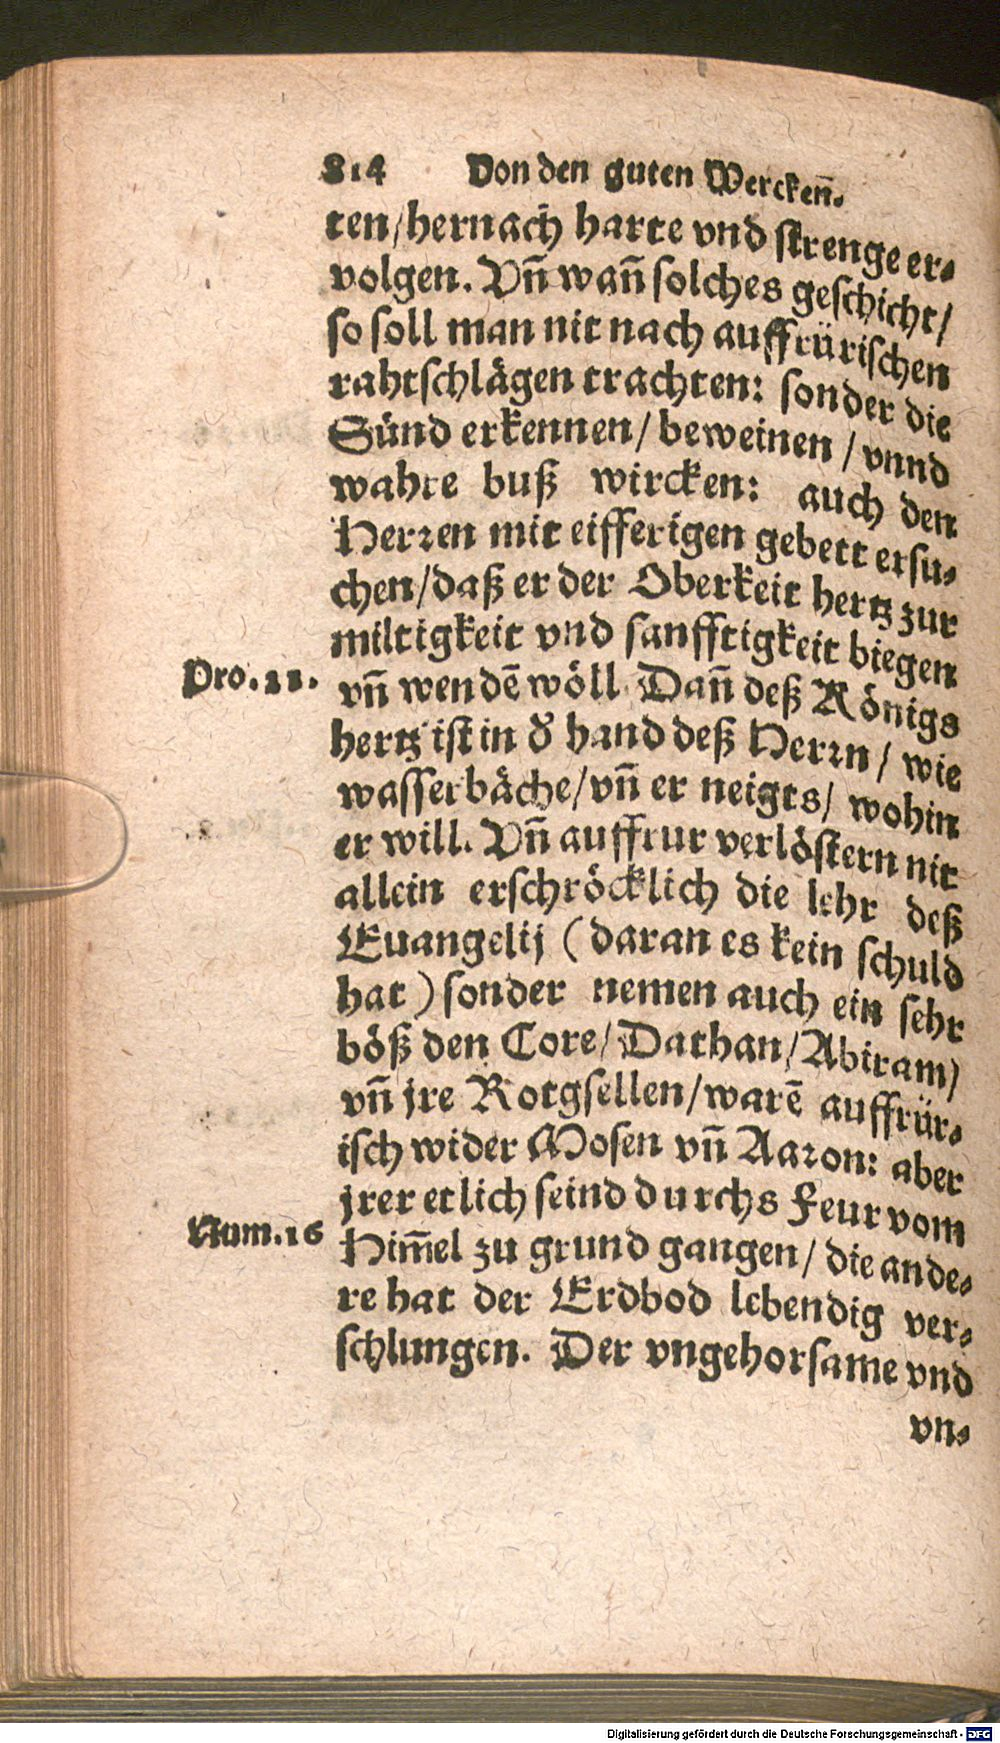 814 Von den guten Wercken̄.
ten/hernach harte vnd strenge er⸗
volgen. Vñ wañ solches geschicht/
so soll man nit nach auffrürischen
rahtschlägen trachten: sonder die
Sünd erkennen/ beweinen / vnnd
wahre buß wircken: auch den
Herꝛen mit eifferigen gebett ersu⸗
chen/daß er der Oberkeit hertz zur
miltigkeit vnd sanfftigkeit biegen
Pro. 21.
vñ wendē wöll. Dañ deß Königs
hertz ist in d̓ hand deß Herꝛn / wie
wasserbäche/vñ er neigts/ wohin
er will. Vñ auffrur verlöstern nit
allein erschröcklich die lehr deß
Euangelij (daran es kein schuld
hat) sonder nemen auch ein sehr
böß den Core/Dathan/Abiram/
vñ jre Rotgsellen/warē auffrür⸗
isch wider Mosen vñ Aaꝛon: aber
jrer etlich seind durchs Feur vom
Num.16
Him̄el zu grund gangen/ die ande⸗
re hat der Erdbod lebendig ver⸗
schlungen. Der vngehorsame vnd
vn⸗
Digitalisierung gefördert durch die Deutsche Forschungsgemeinschaft - DFG